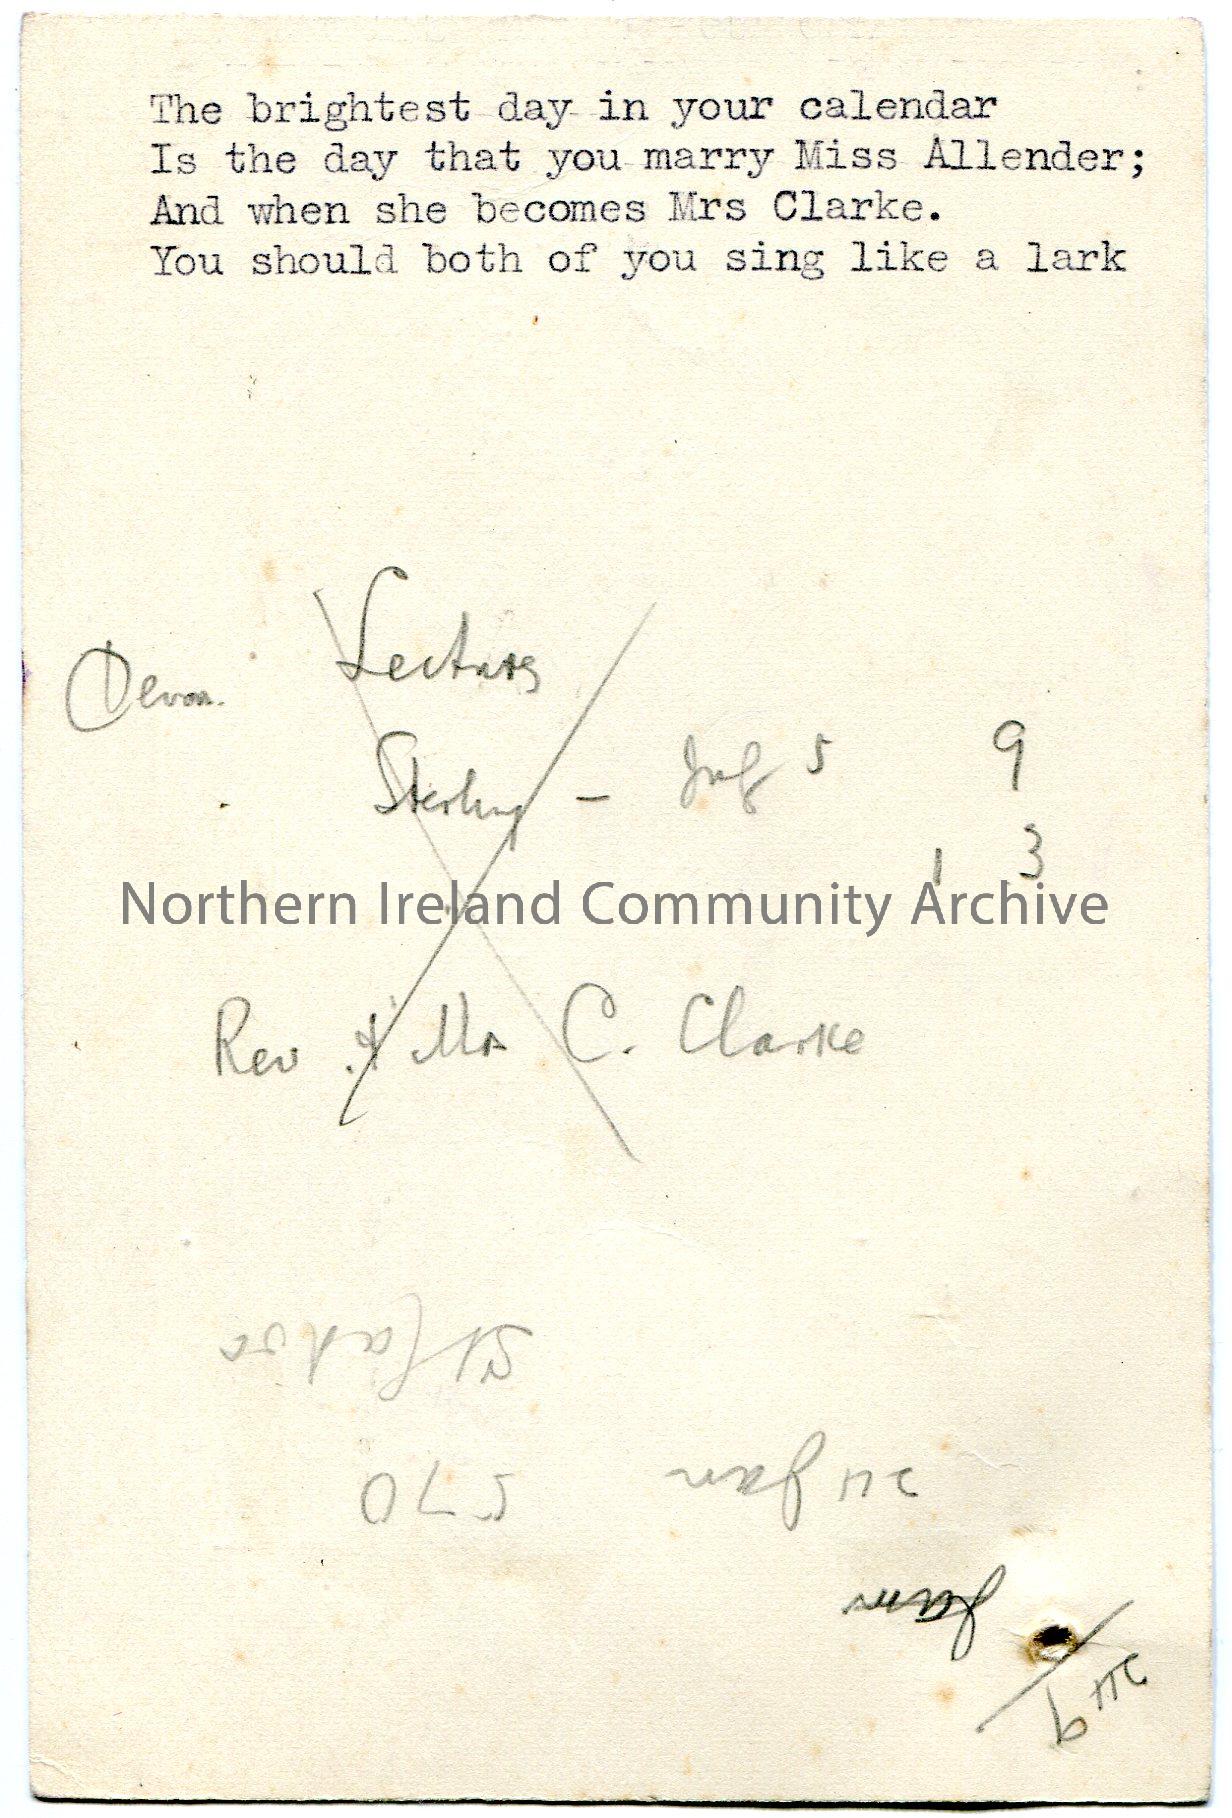 The brightest day in your calendar
Is the day that you marry Miss Allender;
And when she becomes Mrs Clarke.
You should both of you sing like a lark
Lectures
Devon.
Sterling - July 5 9
1 3
Northern Ireland Community Archive
Rev. & Mrs C. Clarke
24 Jan
570